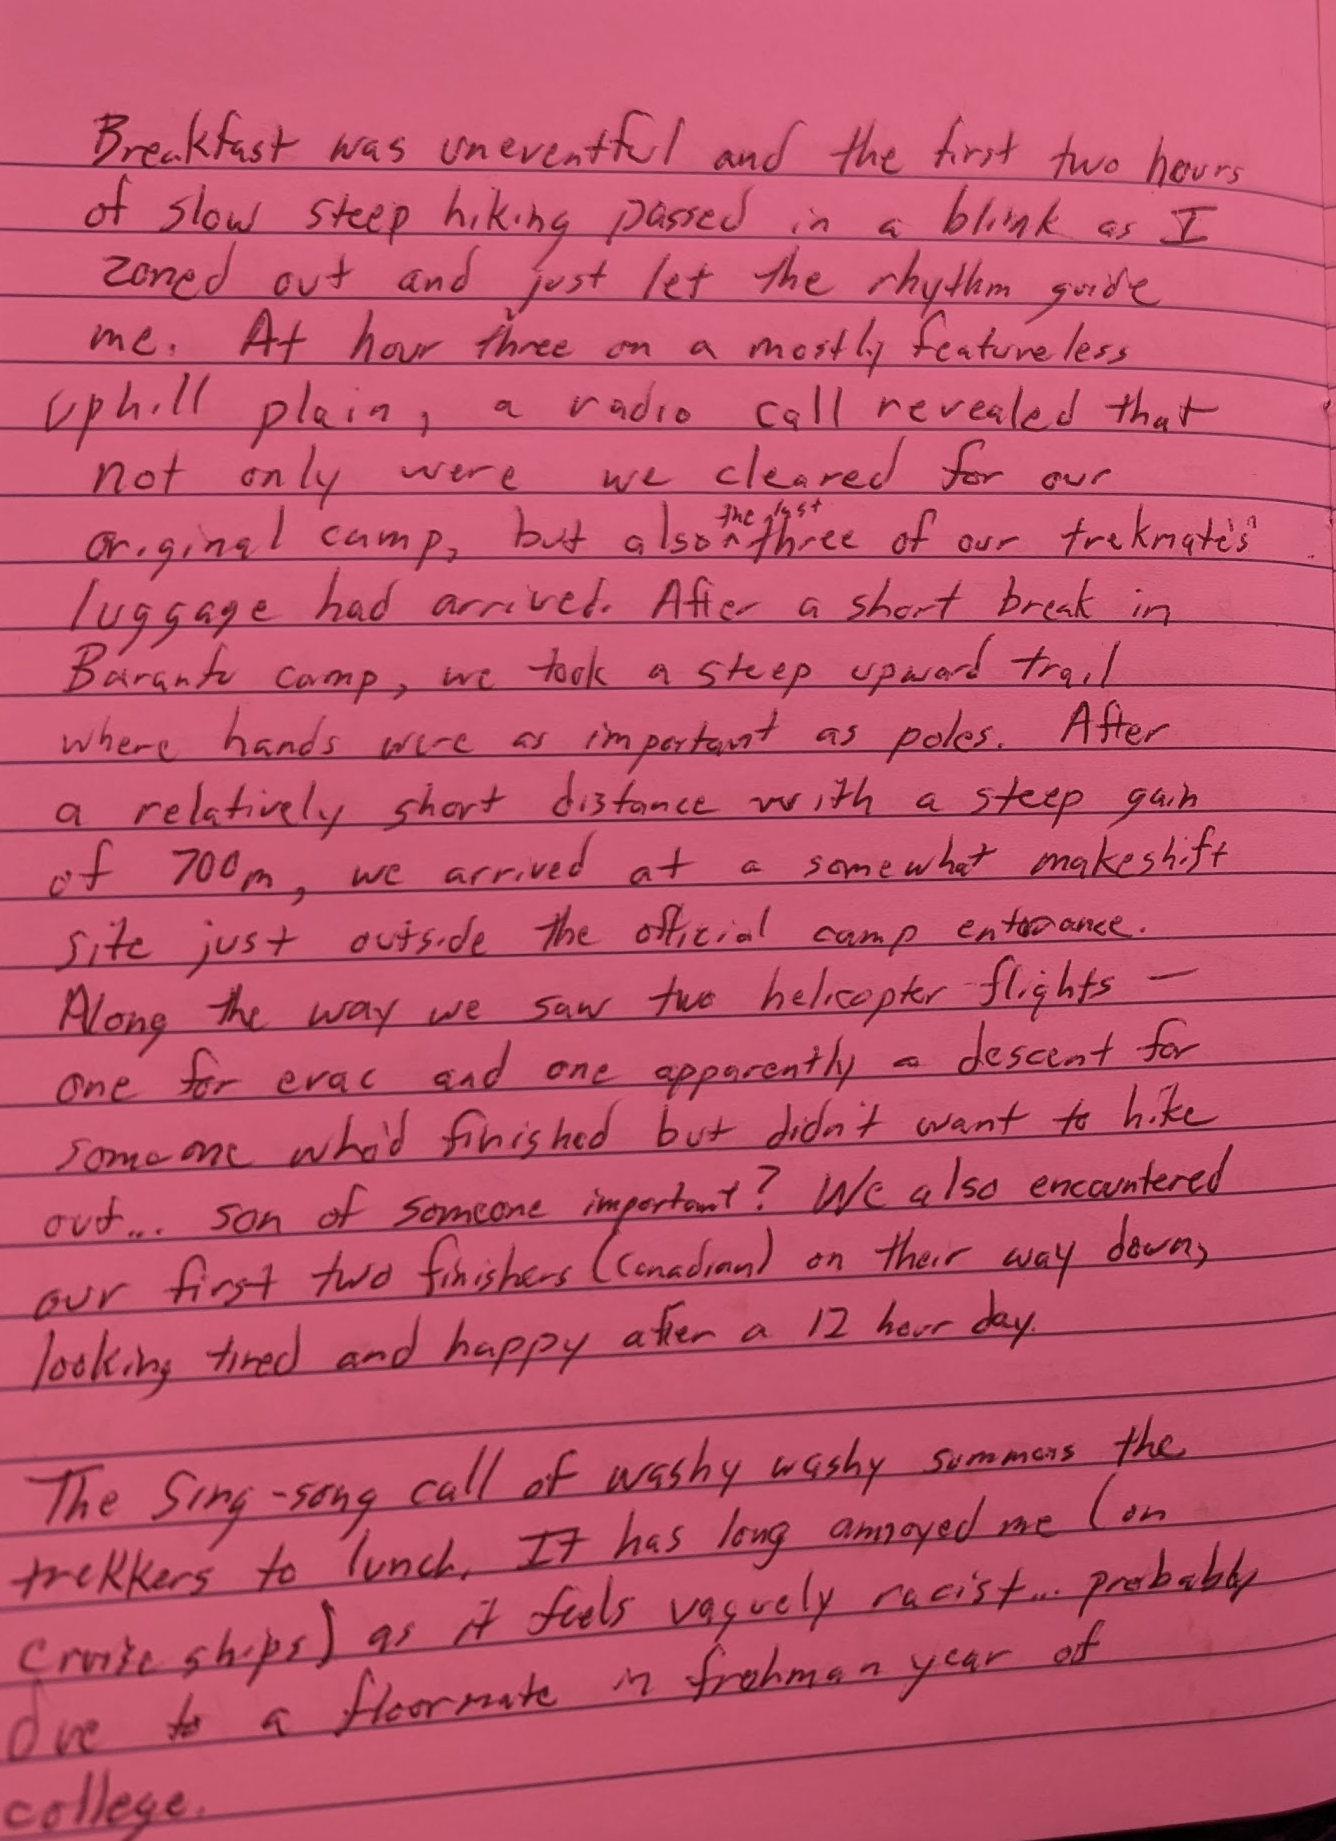 Breakfast was uneventful and the first two hours
of slow steep hiking passed in a blink as I
zoned out and just let the rhythm guide
me. At hour three on a mostly featureless
uphill plain, a radio call revealed that
not only were we cleared for our
original camp, but also ^the last three of our trekmate's
luggage had arrived. After a short break in
Barantu camp, we took a steep upward trail
where hands were as important as poles. After
a relatively short distance with a steep gain
of 700m, we arrived at a somewhat makeshift
site just outside the official camp entrance.
Along the way we saw two helicopter flights —
one for evac and one apparently a descent for
someone who'd finished but didn't want to hike
out... son of someone important? We also encountered
our first two finishers (Canadian) on their way down,
looking tired and happy after a 12 hour day.
The Sing-song call of washy washy summons the
trekkers to lunch. It has long annoyed me (on
cruise ships) as it feels vaguely racist... probably
due to a floormate in freshman year of
college.